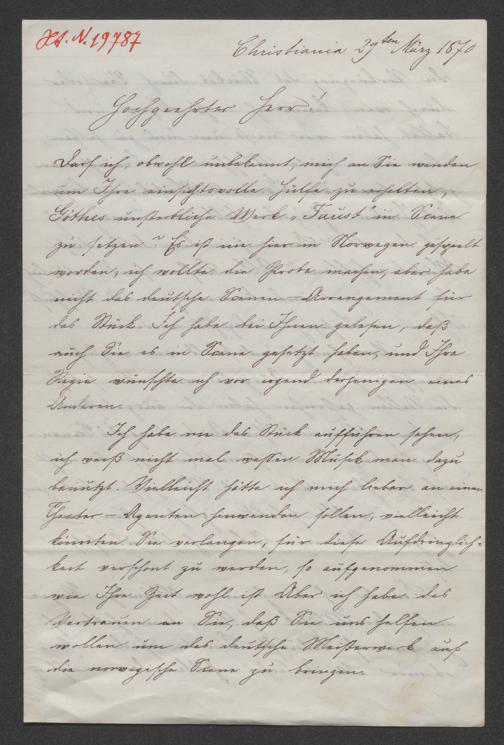 H.I.N. 19787
Christiania 29ten März 1870
Hochgeehrter Herr!
Darf ich, obwohl unbekannt, mich an Sie wenden
um Ihre einsichtsvolle Hülfe zu erhalten,
Göthes unsterbliche Werk „Faust in Scene
zu setzen? Es ist nie hier in Norwegen gespielt
worden, ich wollte die Probe machen, aber habe
nicht das deutsche Scenen-Arrangement für
das Stück. Ich habe bei Ihnen gelesen, daß
auch Sie es in Scene gesetzt haben, und Ihre
Regie wünschte ich vor irgend derjenigen eines
Anderen.
Ich habe nie das Stück aufführen sehen,
ich weiß nicht mal wessen Musik man dazu
benützt. Vielleicht hätte ich mich lieber an einen
Theater-Agenten hinwenden sollen, vielleicht
könnten Sie verlangen, für diese Aufdringlich-
keit verschont zu werden, so aufgenommen
wie Ihre Zeit wohl ist. Aber ich habe das
Vertrauen an Sie, daß Sie uns helfen
wollen um das deutsche Meisterwerk auf
die norwegische Scene zu bringen.